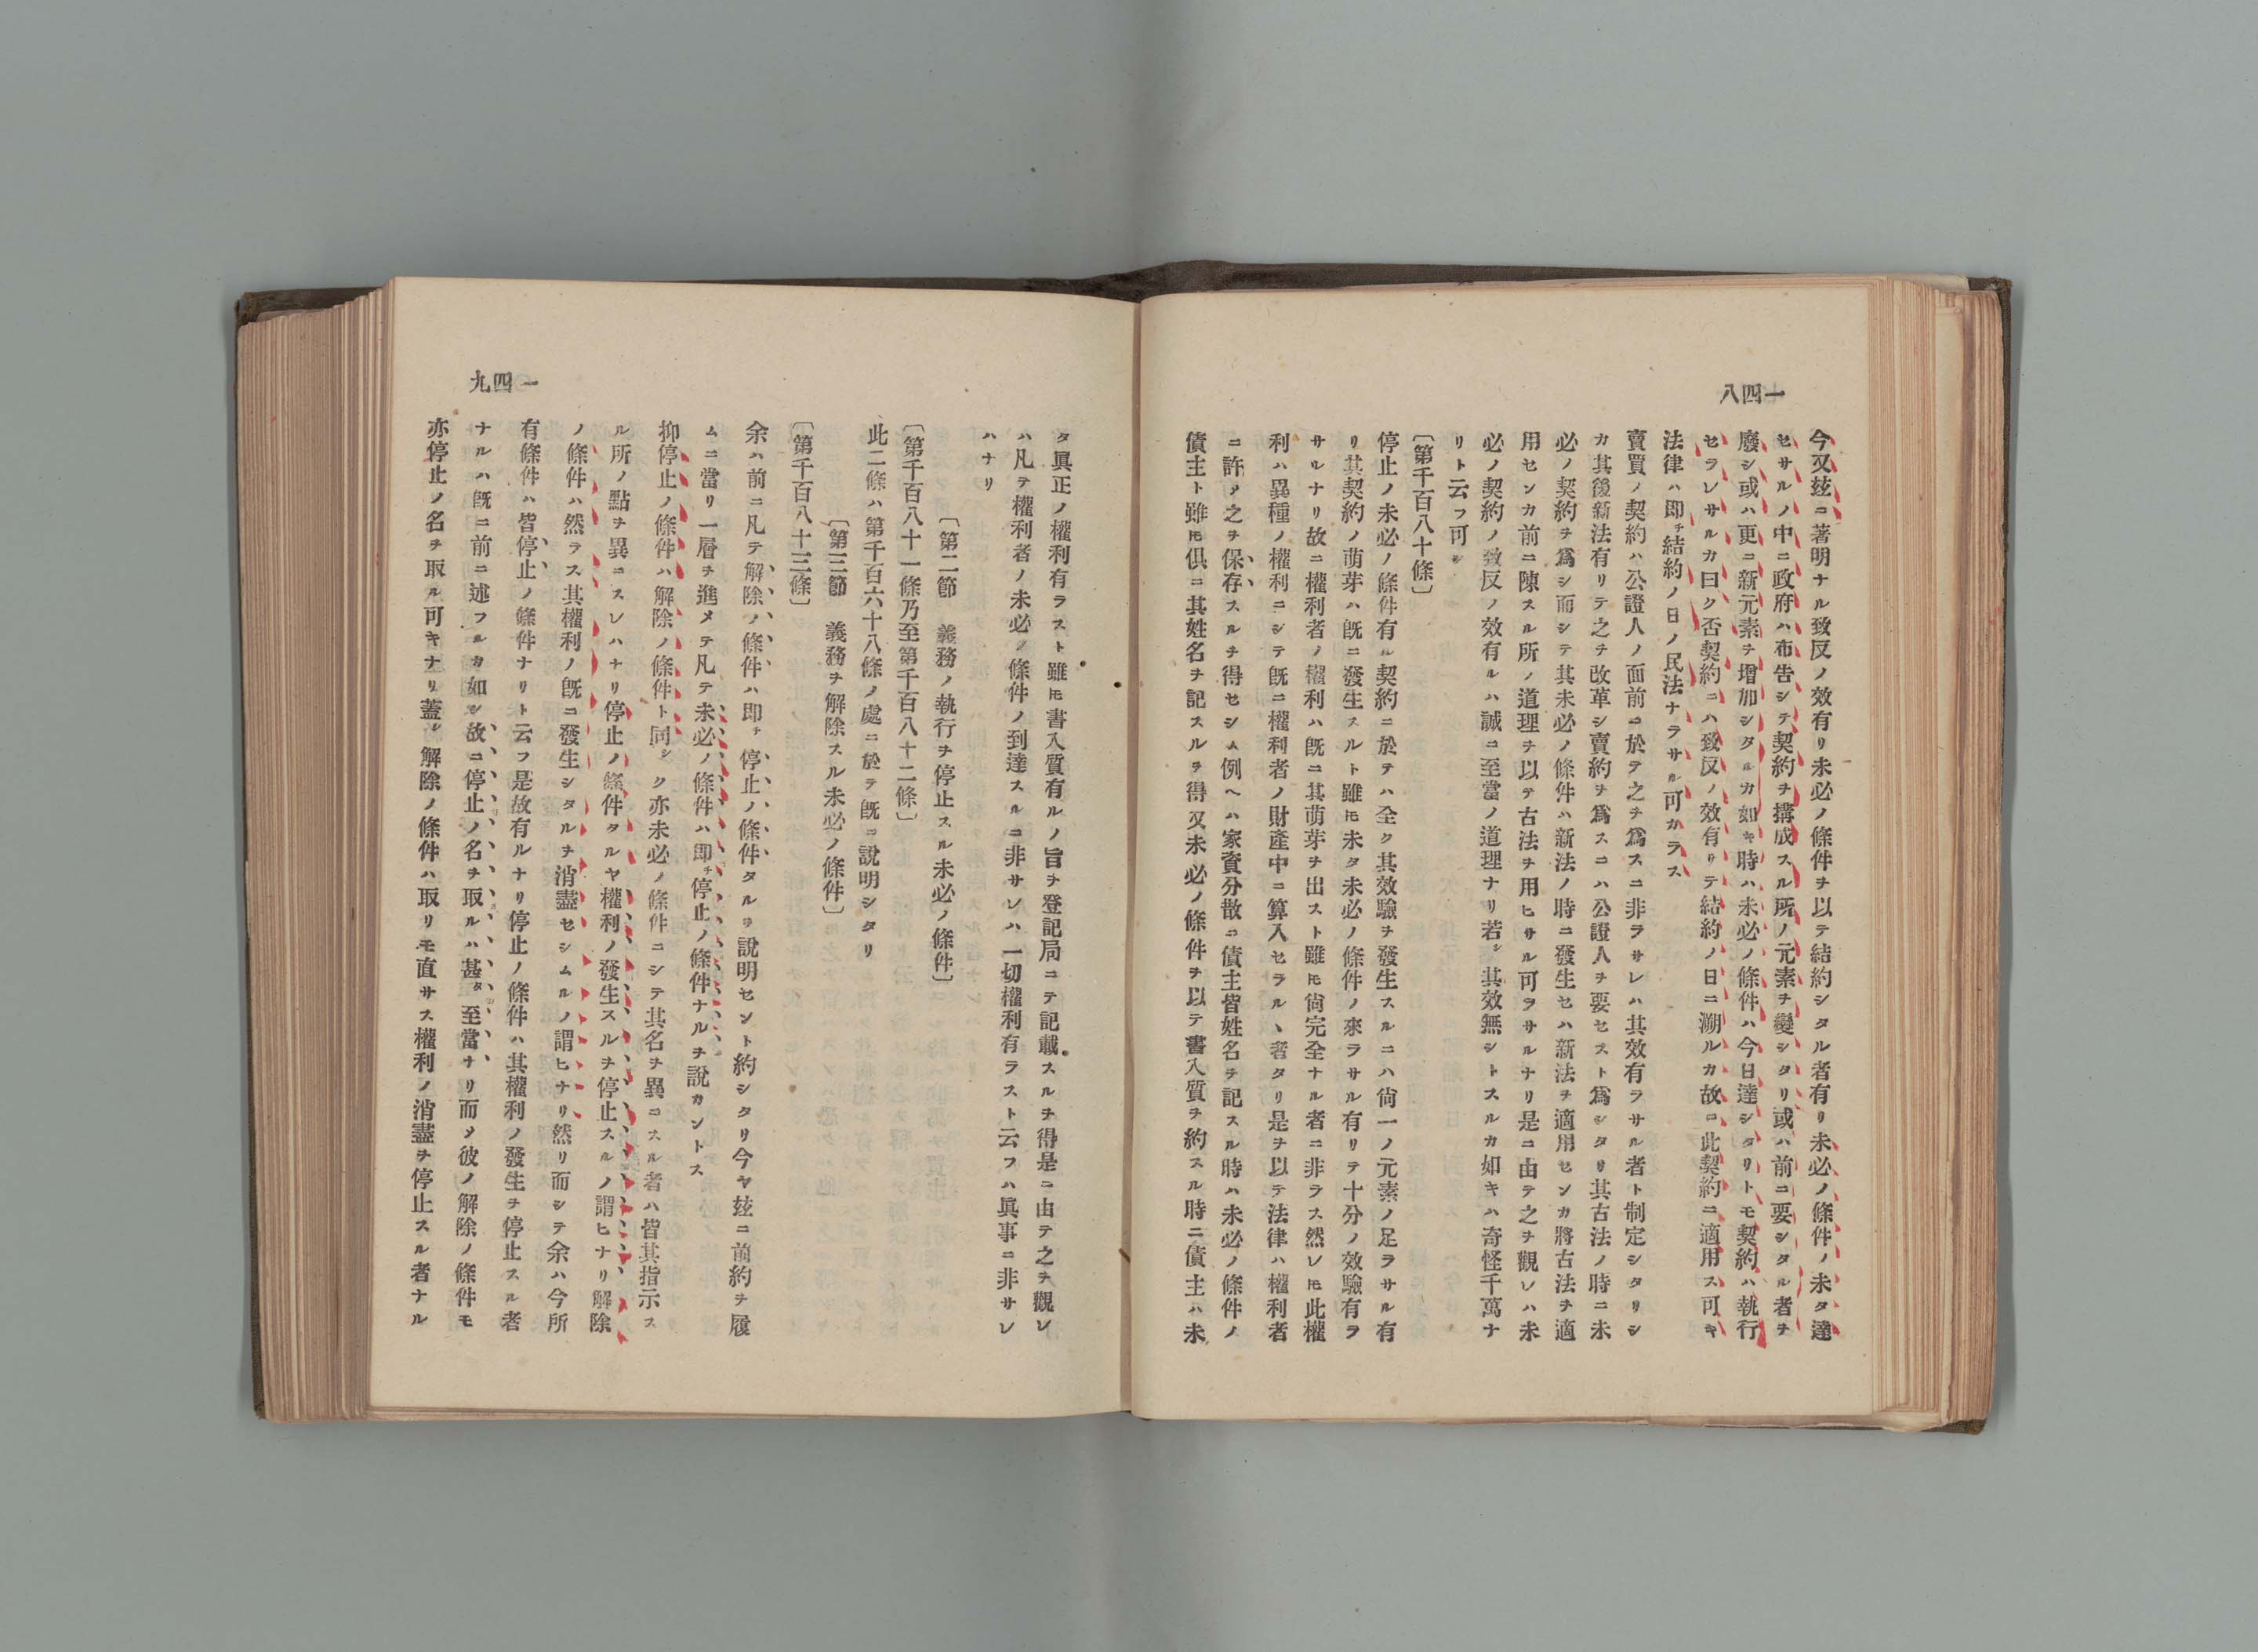 一四八
今又玆ニ著明ナル致反ノ效有リ未必ノ條件ヲ以テ結約シタル者有リ未必ノ條件ノ未タ達
セサルノ中ニ政府ハ布告シテ契約ヲ搆成スル所ノ元素ヲ變シタリ或ハ前ニ要シタル者ヲ
廢シ或ハ更ニ新元素ヲ增加シタルカ如キ時ハ未必ノ條件ハ今日達シタリトモ契約ハ執行
セラレサルカ曰ク否契約ニハ致反ノ效有リテ結約ノ日ニ溯ルカ故ニ此契約ニ適用ス可キ
法律ハ即チ結約ノ日ノ民法ナラサル可カラス
賣買ノ契約ハ公證人ノ面前ニ於テ之ヲ爲スニ非ラサレハ其效有ラサル者ト制定シタリシ
カ其後新法有リテ之ヲ改革シ賣約ヲ爲スニハ公證人ヲ要セスト爲シタリ其古法ノ時ニ未
必ノ契約ヲ爲シ而シテ其未必ノ條件ハ新法ノ時ニ發生セハ新法ヲ適用センカ將古法ヲ適
用センカ前ニ陳スル所ノ道理ヲ以テ古法ヲ用ヒサル可ヲサルナリ是ニ由テ之ヲ觀レハ未
必ノ契約ノ致反ノ效有ルハ誠ニ至當ノ道理ナリ若シ其效無シトスルカ如キハ奇怪千萬ナ
リト云フ可シ
〔第千百八十條〕
停止ノ未必ノ條件有ル契約ニ於テハ全ク其效驗ヲ發生スルニハ尙一ノ元素ノ足ラサル有
リ其契約ノ萌芽ハ既ニ發生スルト雖𪜈未タ未必ノ條件ノ來ラサル有リテ十分ノ效驗有ラ
サルナリ故ニ權利者ノ權利ハ既ニ其萌芽ヲ出スト雖𪜈尙完全ナル者ニ非ラス然レ𪜈此權
利ハ異種ノ權利ニシテ既ニ權利者ノ財產中ニ算入セラルヽ者タリ是ヲ以テ法律ハ權利者
ニ許シ之ヲ保存スルヲ得セシム例ヘハ家資分散ニ債主皆姓名ヲ記スル時ハ未必ノ條件ノ
債主ト雖𪜈俱ニ其姓名ヲ記スルヲ得又未必ノ條件ヲ以テ書入質ヲ約スル時ニ債主ハ未
一四九
タ眞正ノ權利有ラスト雖𪜈書入質有ルノ旨ヲ登記局ニテ記載スルヲ得是ニ由テ之ヲ觀レ
ハ凡テ權利者ノ未必ノ條件ノ到達スルニ非サレハ一切權利有ラスト云フハ眞事ニ非サレ
ハナリ
〔第二節　義務ノ執行ヲ停止スル未必ノ條件〕
〔第千百八十一條乃至第千百八十二條〕
此二條ハ第千百六十八條ノ處ニ於テ既ニ說明シタリ
〔第三節　義務ヲ解除スル未必ノ條件〕
〔第千百八十三條〕
余ハ前ニ凡テ解除ノ條件ハ即チ停止ノ條件タルヲ說明セント約シタリ今ヤ玆ニ前約ヲ履
ムニ當リ一層ヲ進メテ凡テ未必ノ條件ハ即チ停止ノ條件ナルヲ說カントス
抑停止ノ條件ハ解除ノ條件ト同シク亦未必ノ條件ニシテ其名ヲ異ニスル者ハ皆其指示ス
ル所ノ點ヲ異ニスレハナリ停止ノ條件タルヤ權利ノ發生スルヲ停止スルノ謂ヒナリ解除
ノ條件ハ然ラス其權利ノ既ニ發生シタルヲ消盡セシムルノ謂ヒナリ然リ而シテ余ハ今所
有條件ハ皆停止ノ條件ナリト云フ是故有ルナリ停止ノ條件ハ其權利ノ發生ヲ停止スル者
ナルハ既ニ前ニ述フルカ如シ故ニ停止ノ名ヲ取ルハ甚タ至當ナリ而メ彼ノ解除ノ條件モ
亦停止ノ名ヲ取ル可キナリ蓋シ解除ノ條件ハ取リモ直サス權利ノ消盡ヲ停止スル者ナル